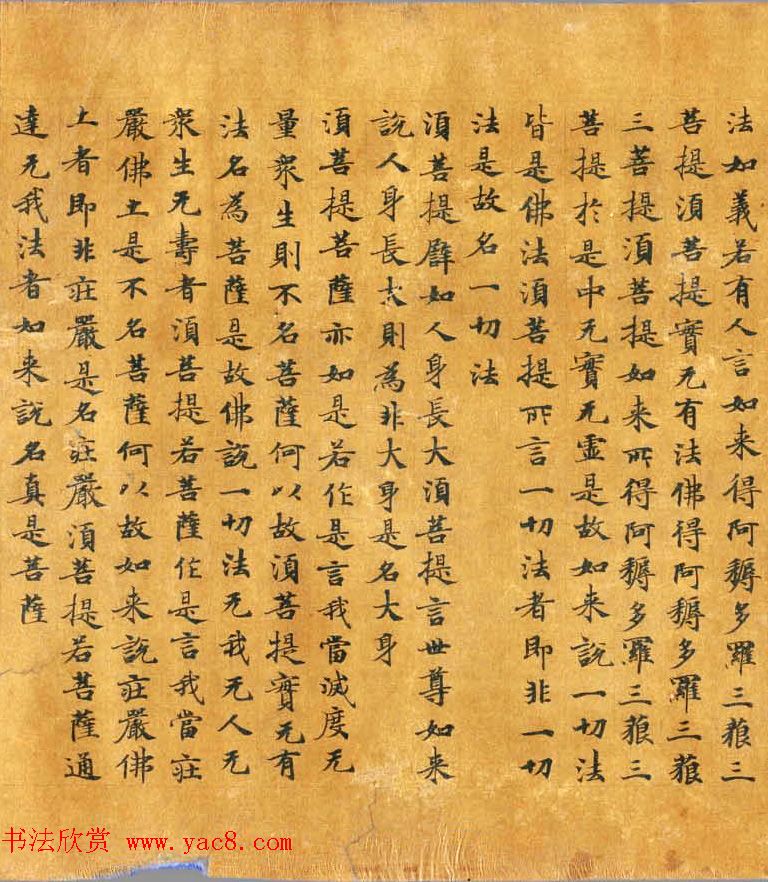 法如義若有人言如来得阿耨多羅三藐三
菩提須菩提實无有法佛得阿耨多羅三藐
三菩提須菩提如来所得阿耨多羅三藐三
菩提於是中无實无虛是故如来說一切法
皆是佛法須菩提所言一切法者即非一切
法是故名一切法
須菩提譬如人身長大須菩提言世尊如来
說人身長大則為非大身是名大身
須菩提菩薩亦如是若作是言我當滅度无
量衆生則不名菩薩何以故須菩提實无有
法名為菩薩是故佛說一切法无我无人无
衆生无壽者須菩提若菩薩作是言我當莊
嚴佛土是不名菩薩何以故如来說莊嚴佛
土者即非莊嚴是名莊嚴須菩提若菩薩通
達无我法者如来說名真是菩薩
书法欣赏 www.yac8.com